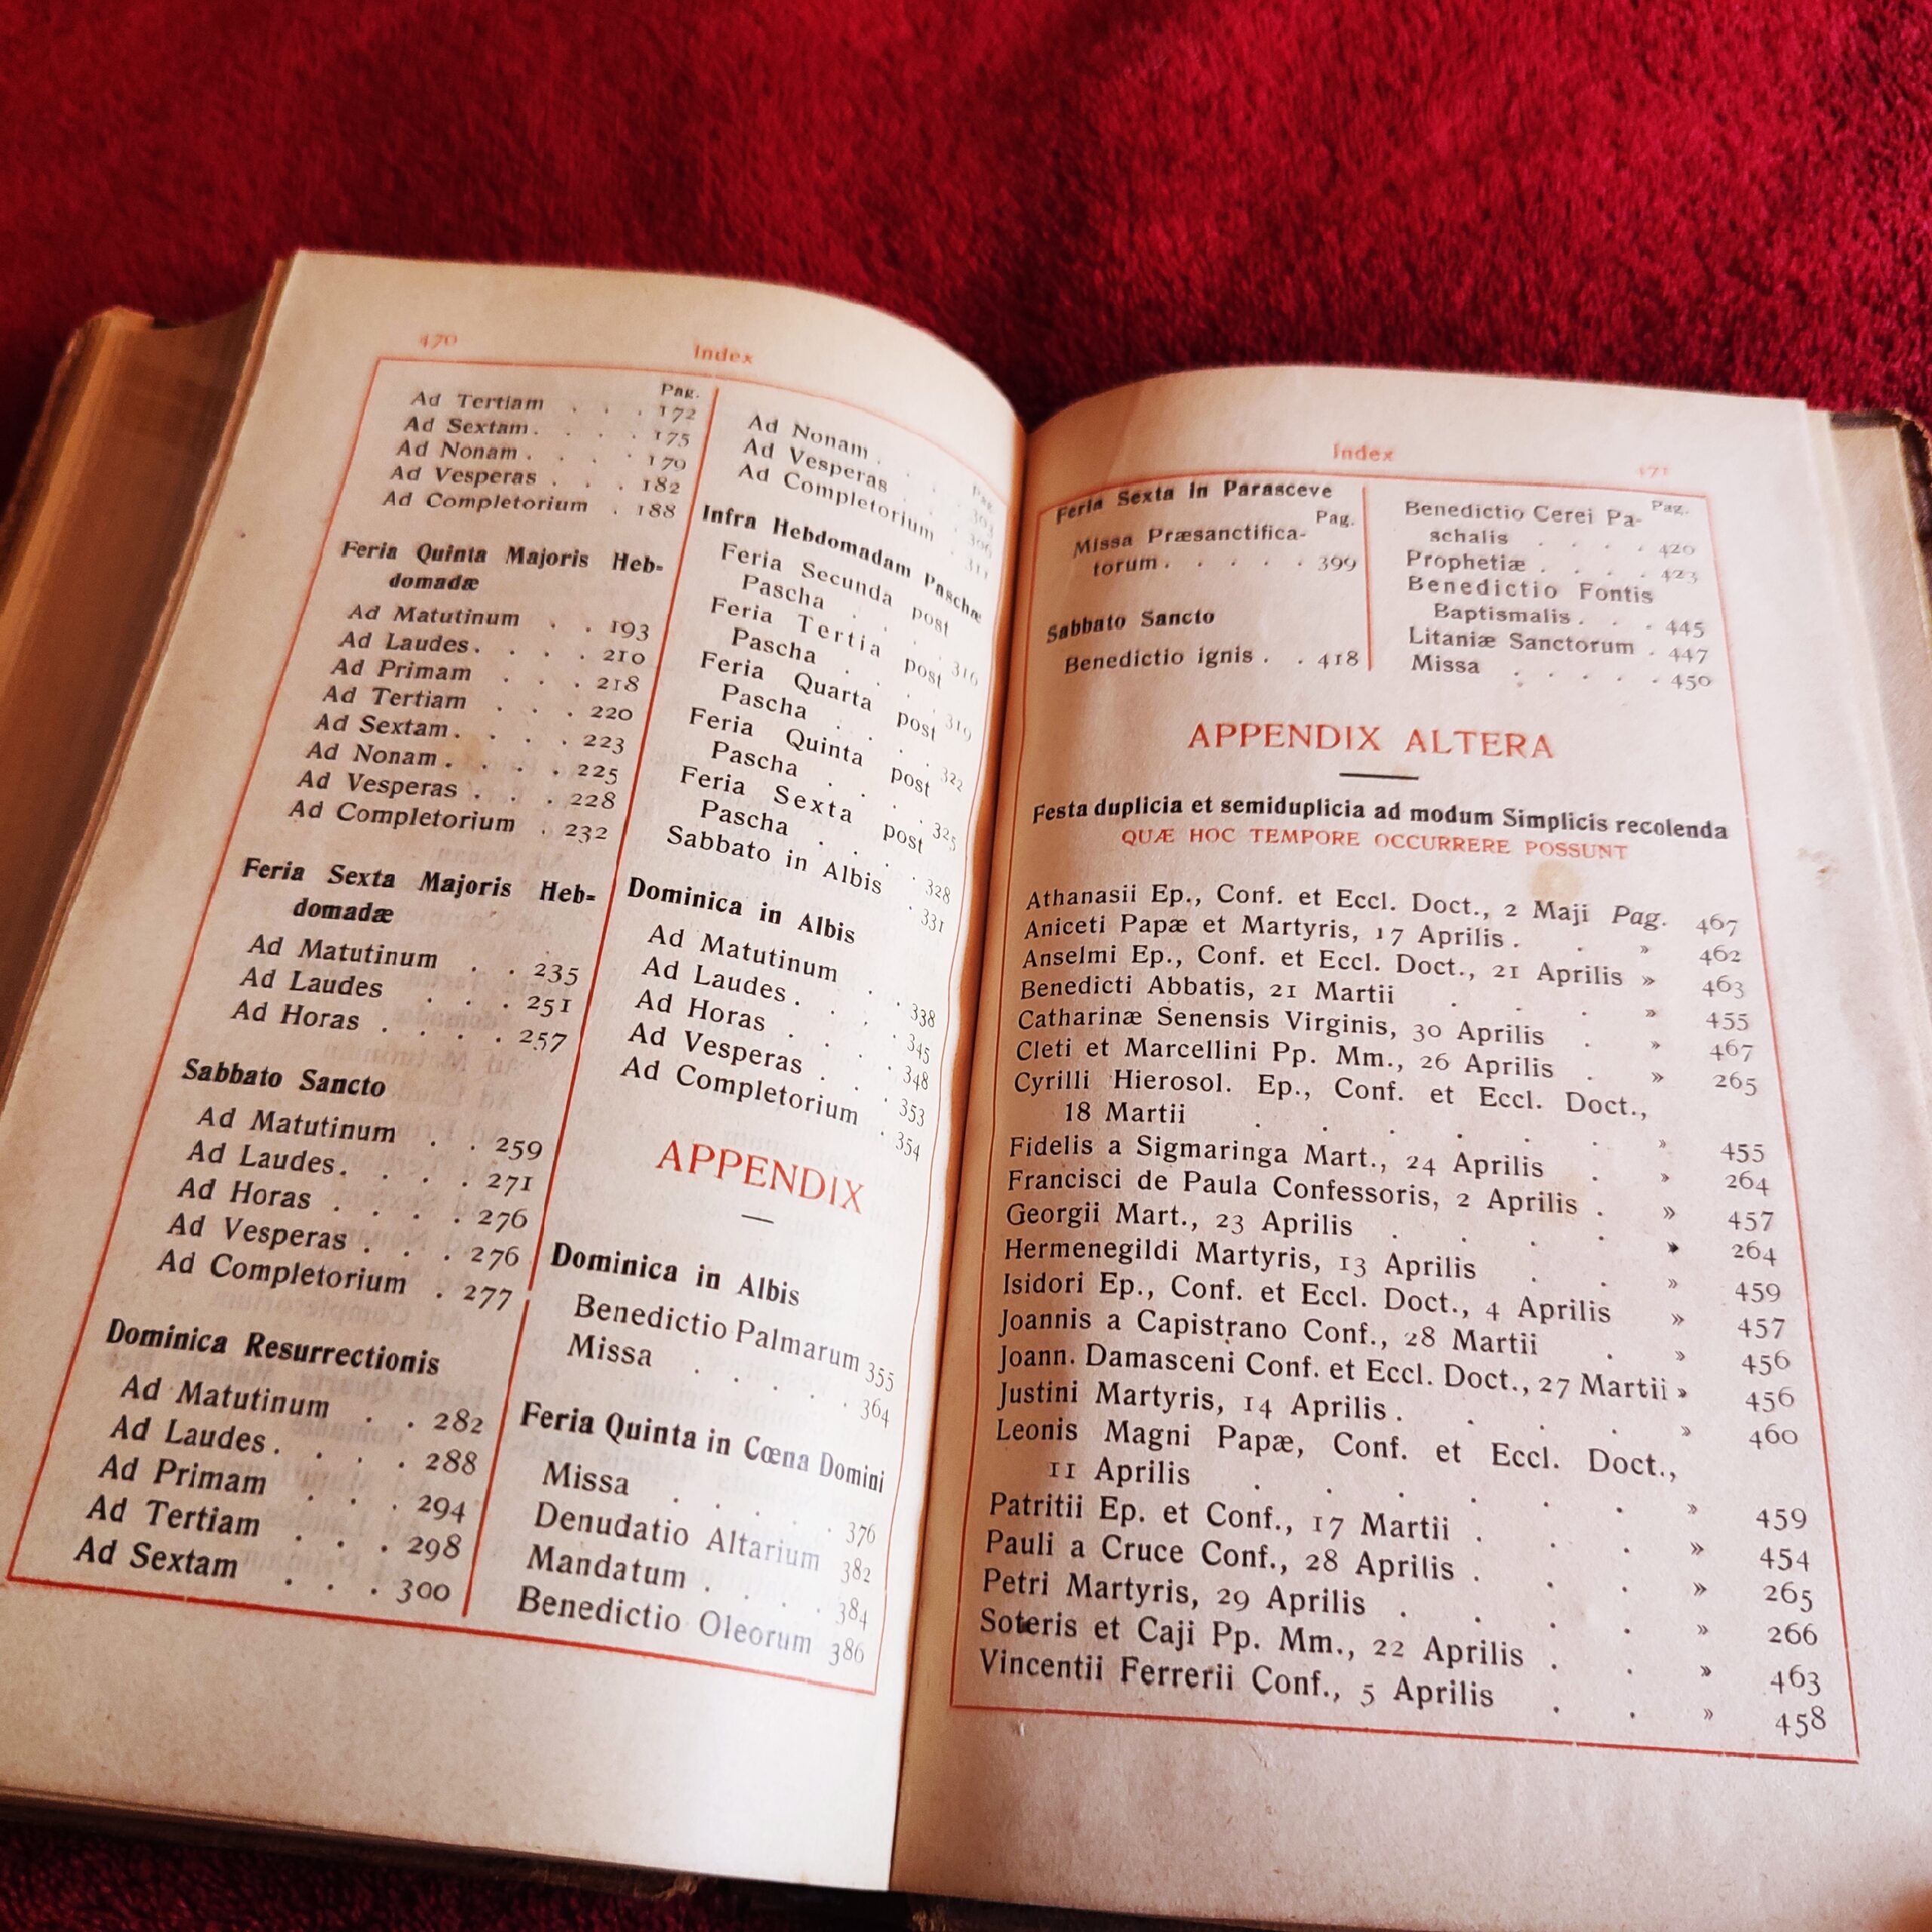 470
Index
Pag.
Ad Tertiam . . . 172
Ad Sextam . . . . 175
Ad Nonam . . . . 179
Ad Vesperas . . . 182
Ad Completorium . 188
Feria Quinta Majoris Heb-
domadæ
Ad Matutinum . . 193
Ad Laudes . . . . 210
Ad Primam . . . 218
Ad Tertiam . . . 220
Ad Sextam . . . . 223
Ad Nonam . . . . 225
Ad Vesperas . . . 228
Ad Completorium . 232
Feria Sexta Majoris Heb-
domadæ
Ad Matutinum . . 235
Ad Laudes . . . 251
Ad Horas . . . . 257
Sabbato Sancto
Ad Matutinum . . 259
Ad Laudes . . . . 271
Ad Horas . . . . 276
Ad Vesperas . . . 276
Ad Completorium . 277
Dominica Resurrectionis
Ad Matutinum . . 282
Ad Laudes . . . . 288
Ad Primam . . . 294
Ad Tertiam . . . 298
Ad Sextam . . . 300
Pag.
Ad Nonam . . . 303
Ad Vesperas . . . 306
Ad Completorium . 311
Infra Hebdomadam Paschæ
Feria Secunda post
Pascha . . . . 316
Feria Tertia post
Pascha . . . . 319
Feria Quarta post
Pascha . . . . 322
Feria Quinta post
Pascha . . . . 325
Feria Sexta post
Pascha . . . . 328
Sabbato in Albis . 331
Dominica in Albis
Ad Matutinum . . 338
Ad Laudes . . . . 345
Ad Horas . . . . 348
Ad Vesperas . . . 353
Ad Completorium . 354
APPENDIX
Dominica in Albis
Benedictio Palmarum 355
Missa . . . . . 364
Feria Quinta in Cœna Domini
Missa . . . . . 376
Denudatio Altarium 382
Mandatum . . . . 384
Benedictio Oleorum 386
Index
471
Feria Sexta in Parasceve
Pag.
Missa Præsanctifica-
torum . . . . . 399
Sabbato Sancto
Benedictio ignis . . 418
Pag.
Benedictio Cerei Pa-
schalis . . . . 420
Prophetiæ . . . . 423
Benedictio Fontis
Baptismalis . . . 445
Litaniæ Sanctorum . 447
Missa . . . . . 450
APPENDIX ALTERA
Festa duplicia et semiduplicia ad modum Simplicis recolenda
QUÆ HOC TEMPORE OCCURRERE POSSUNT
Athanasii Ep., Conf. et Eccl. Doct., 2 Maji Pag. 467
Aniceti Papæ et Martyris, 17 Aprilis . . » 462
Anselmi Ep., Conf. et Eccl. Doct., 21 Aprilis » 463
Benedicti Abbatis, 21 Martii . . . » 455
Catharinæ Senensis Virginis, 30 Aprilis . » 467
Cleti et Marcellini Pp. Mm., 26 Aprilis . » 265
Cyrilli Hierosol. Ep., Conf. et Eccl. Doct.,
18 Martii . . . . . . » 455
Fidelis a Sigmaringa Mart., 24 Aprilis . » 264
Francisci de Paula Confessoris, 2 Aprilis . » 457
Georgii Mart., 23 Aprilis . . . . » 264
Hermenegildi Martyris, 13 Aprilis . . » 459
Isidori Ep., Conf. et Eccl. Doct., 4 Aprilis » 457
Joannis a Capistrano Conf., 28 Martii . » 456
Joann. Damasceni Conf. et Eccl. Doct., 27 Martii » 456
Justini Martyris, 14 Aprilis . . . . » 460
Leonis Magni Papæ, Conf. et Eccl. Doct.,
11 Aprilis . . . . . . » 459
Patritii Ep. et Conf., 17 Martii . . . » 454
Pauli a Cruce Conf., 28 Aprilis . . . » 265
Petri Martyris, 29 Aprilis . . . . » 266
Soteris et Caji Pp. Mm., 22 Aprilis . . » 463
Vincentii Ferrerii Conf., 5 Aprilis . . » 458